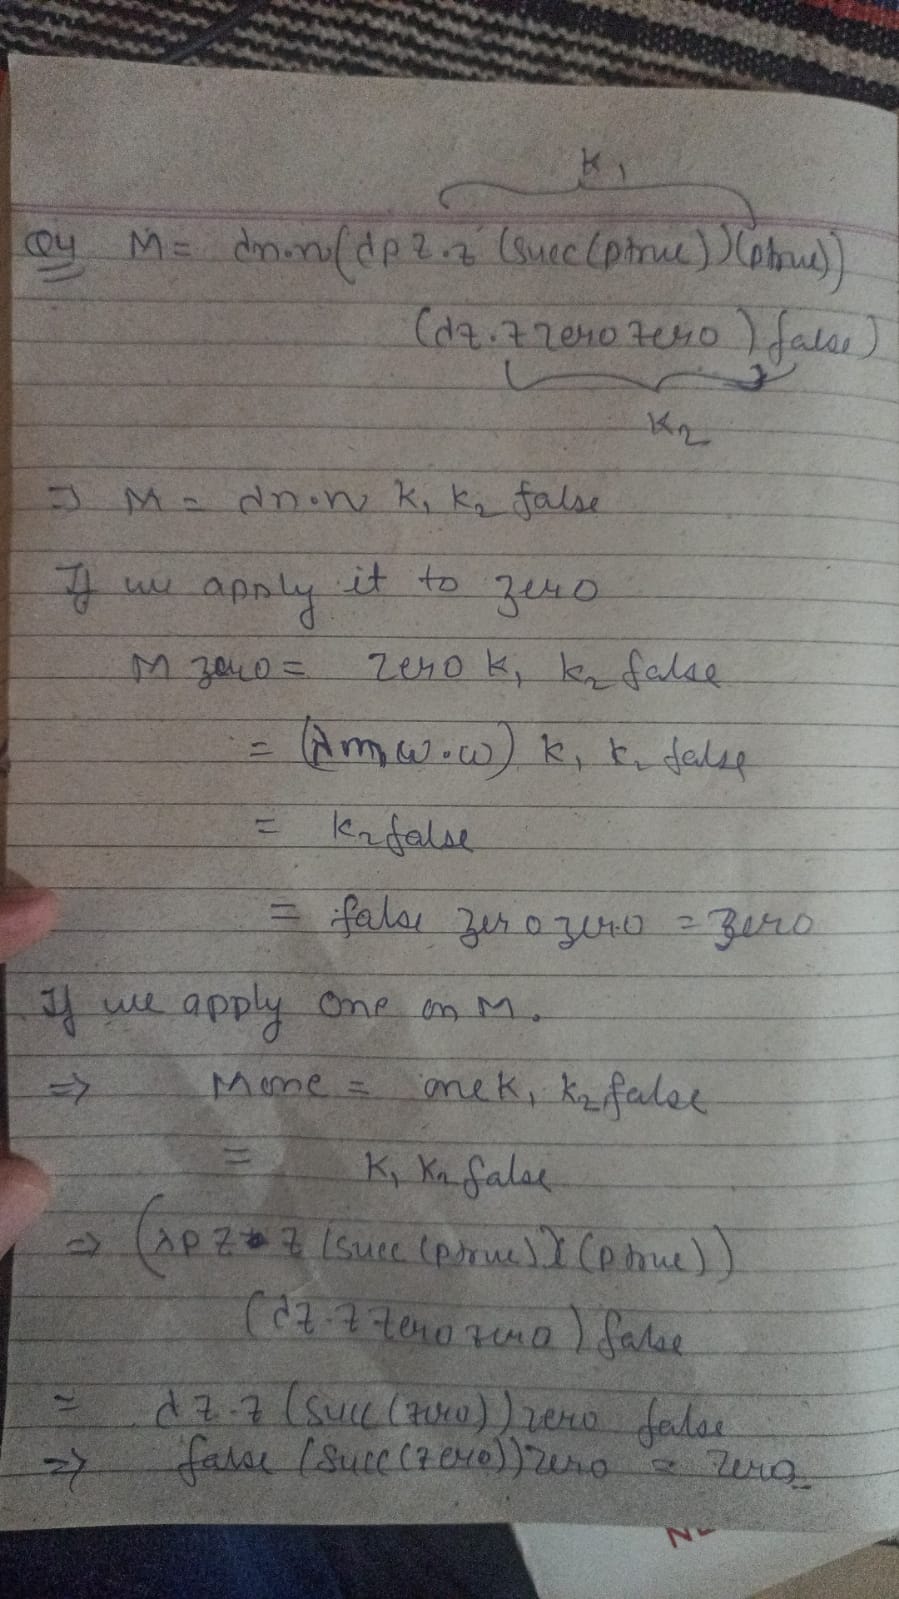 K₁
Q4 M = λn.n(λpz.z (succ(ptrue))(ptrue))
(λz.z zero zero) false)
K₂
⇒ M = λn.n K₁ K₂ false
If we apply it to zero
M zero = zero K₁ K₂ false
= (λm,w.w) K₁ K₂ false
= K₂ false
= false zero zero = zero
If we apply one on M.
⇒ M one = one K₁ K₂ false
= K₁ K₂ false
⇒ (λpz.z (succ(ptrue))(ptrue))
(λz.z zero zero) false
= λz.z (succ(zero)) zero false
⇒ false (succ(zero)) zero = zero